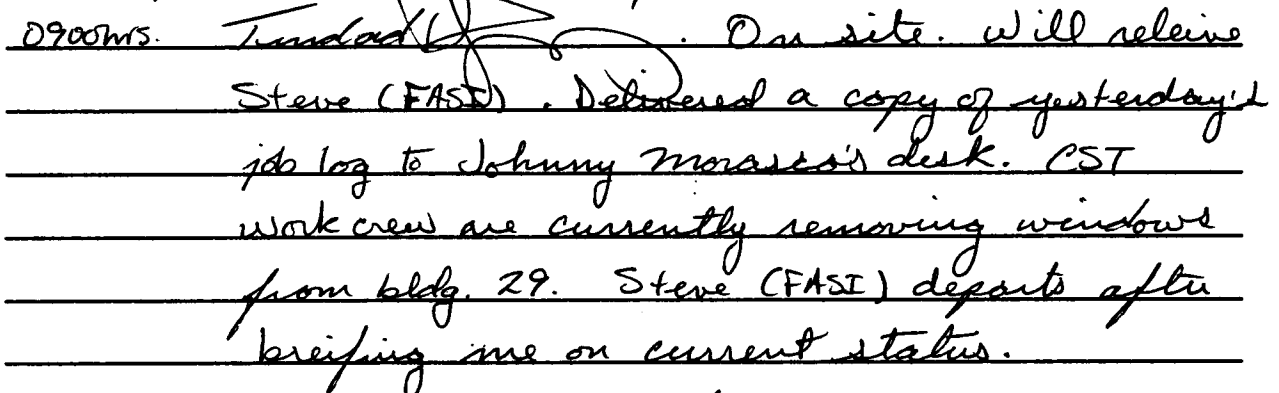 0900hrs. Trinidad . On site. will releive
Steve (FASI). Delivered a copy of yesterday's
job log to Johnny Morasco's desk. CST
work crew are currently removing windows
from bldg. 29. Steve (FASI) departs after
breifing me on current status.